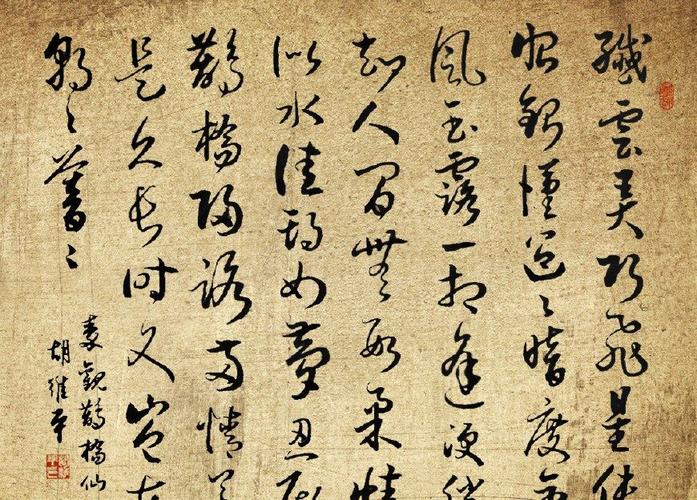 纖雲弄巧飛星傳
恨銀漢迢々暗度金
風玉露一相逢便勝
却人間無數柔情
似水佳期如夢忍顧
鵲橋歸路兩情若
是久長時又豈在
朝々暮々
秦觀鵲橋仙
胡維平